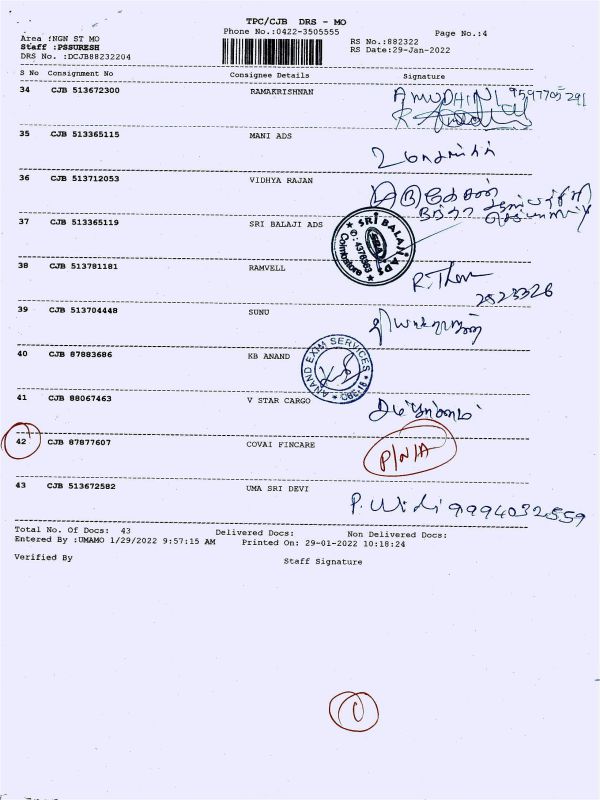 TPC/CJB DRS - MO
Phone No.:0422-3505555
Page No.:4
Area :NGN ST MO
Staff :PSSURESH
DRS No. :DCJB88232204
RS No.:882322
RS Date:29-Jan-2022
S No Consignment No Consignee Details Signature
34 CJB 513672300 RAMAKRISHNAN AMUDHINI 9597705291
35 CJB 513365115 MANI ADS
36 CJB 513712053 VIDHYA RAJAN
37 CJB 513365119 SRI BALAJI ADS
SRI BALAJI ADS
Coimbatore
38 CJB 513781181 RAMVELL
2523326
39 CJB 513704448 SUNU
40 CJB 87883686 KB ANAND
ANAND EXIM SERVICES
KB
41 CJB 88067463 V STAR CARGO
42 CJB 87877607 COVAI FINCARE P/N/A
43 CJB 513672582 UMA SRI DEVI 9994032559
Total No. Of Docs: 43 Delivered Docs: Non Delivered Docs:
Entered By :UMAMO 1/29/2022 9:57:15 AM Printed On: 29-01-2022 10:18:24
Verified By Staff Signature
1